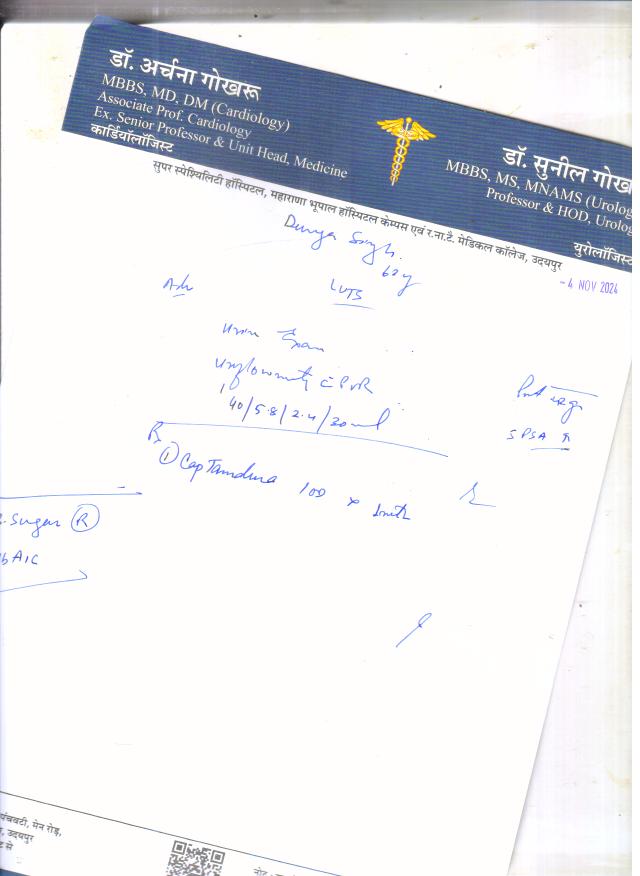 डॉ. अर्चना गोखरू
MBBS, MD, DM (Cardiology)
Associate Prof. Cardiology
Ex. Senior Professor & Unit Head, Medicine
कार्डियॉलॉजिस्ट
डॉ. सुनील गोख
MBBS, MS, MNAMS (Urolog
Professor & HOD, Urolog
युरोलॉजिस्ट
सुपर स्पेश्यिलिटी हॉस्पिटल, महाराणा भूपाल हॉस्पिटल केम्पस एवं र.ना.टै. मेडिकल कॉलेज, उदयपुर
- 4 NOV 2024
Durga Singh.
62y
LUTS
Urine Exam
Uroflowmetry c̄ PVR
40/5.8/2.4/20ml
SPSA
R
① Cap Tamdura 100 x 1mth
Sugar Ⓡ
b A1C
पंचवटी, मेन रोड़,
उदयपुर
से
नोट :